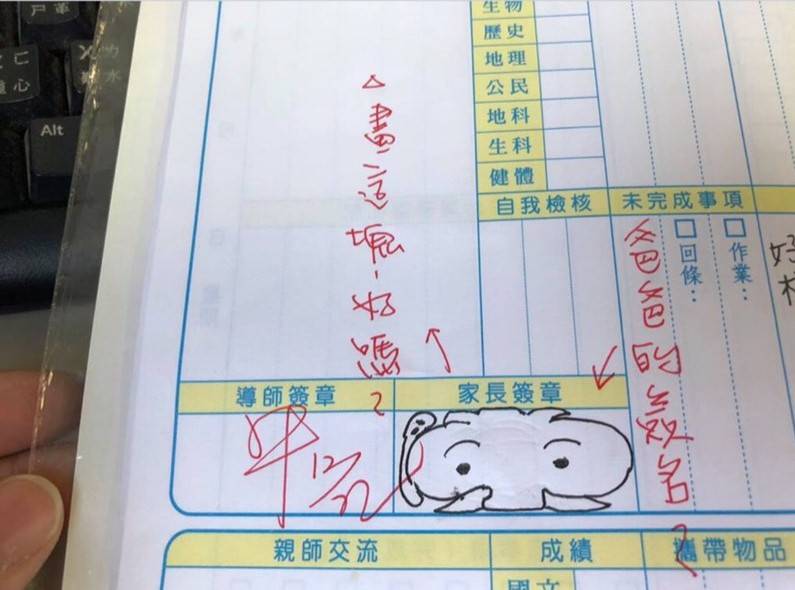 Alt
生物
歷史
地理
公民
地科
生科
健體
自我檢核
未完成事項
□作業：
□回條：
爸爸的簽名？
△畫這塊，好嗎？
導師簽章
家長簽章
12/22
親師交流
成績
攜帶物品
國文
好